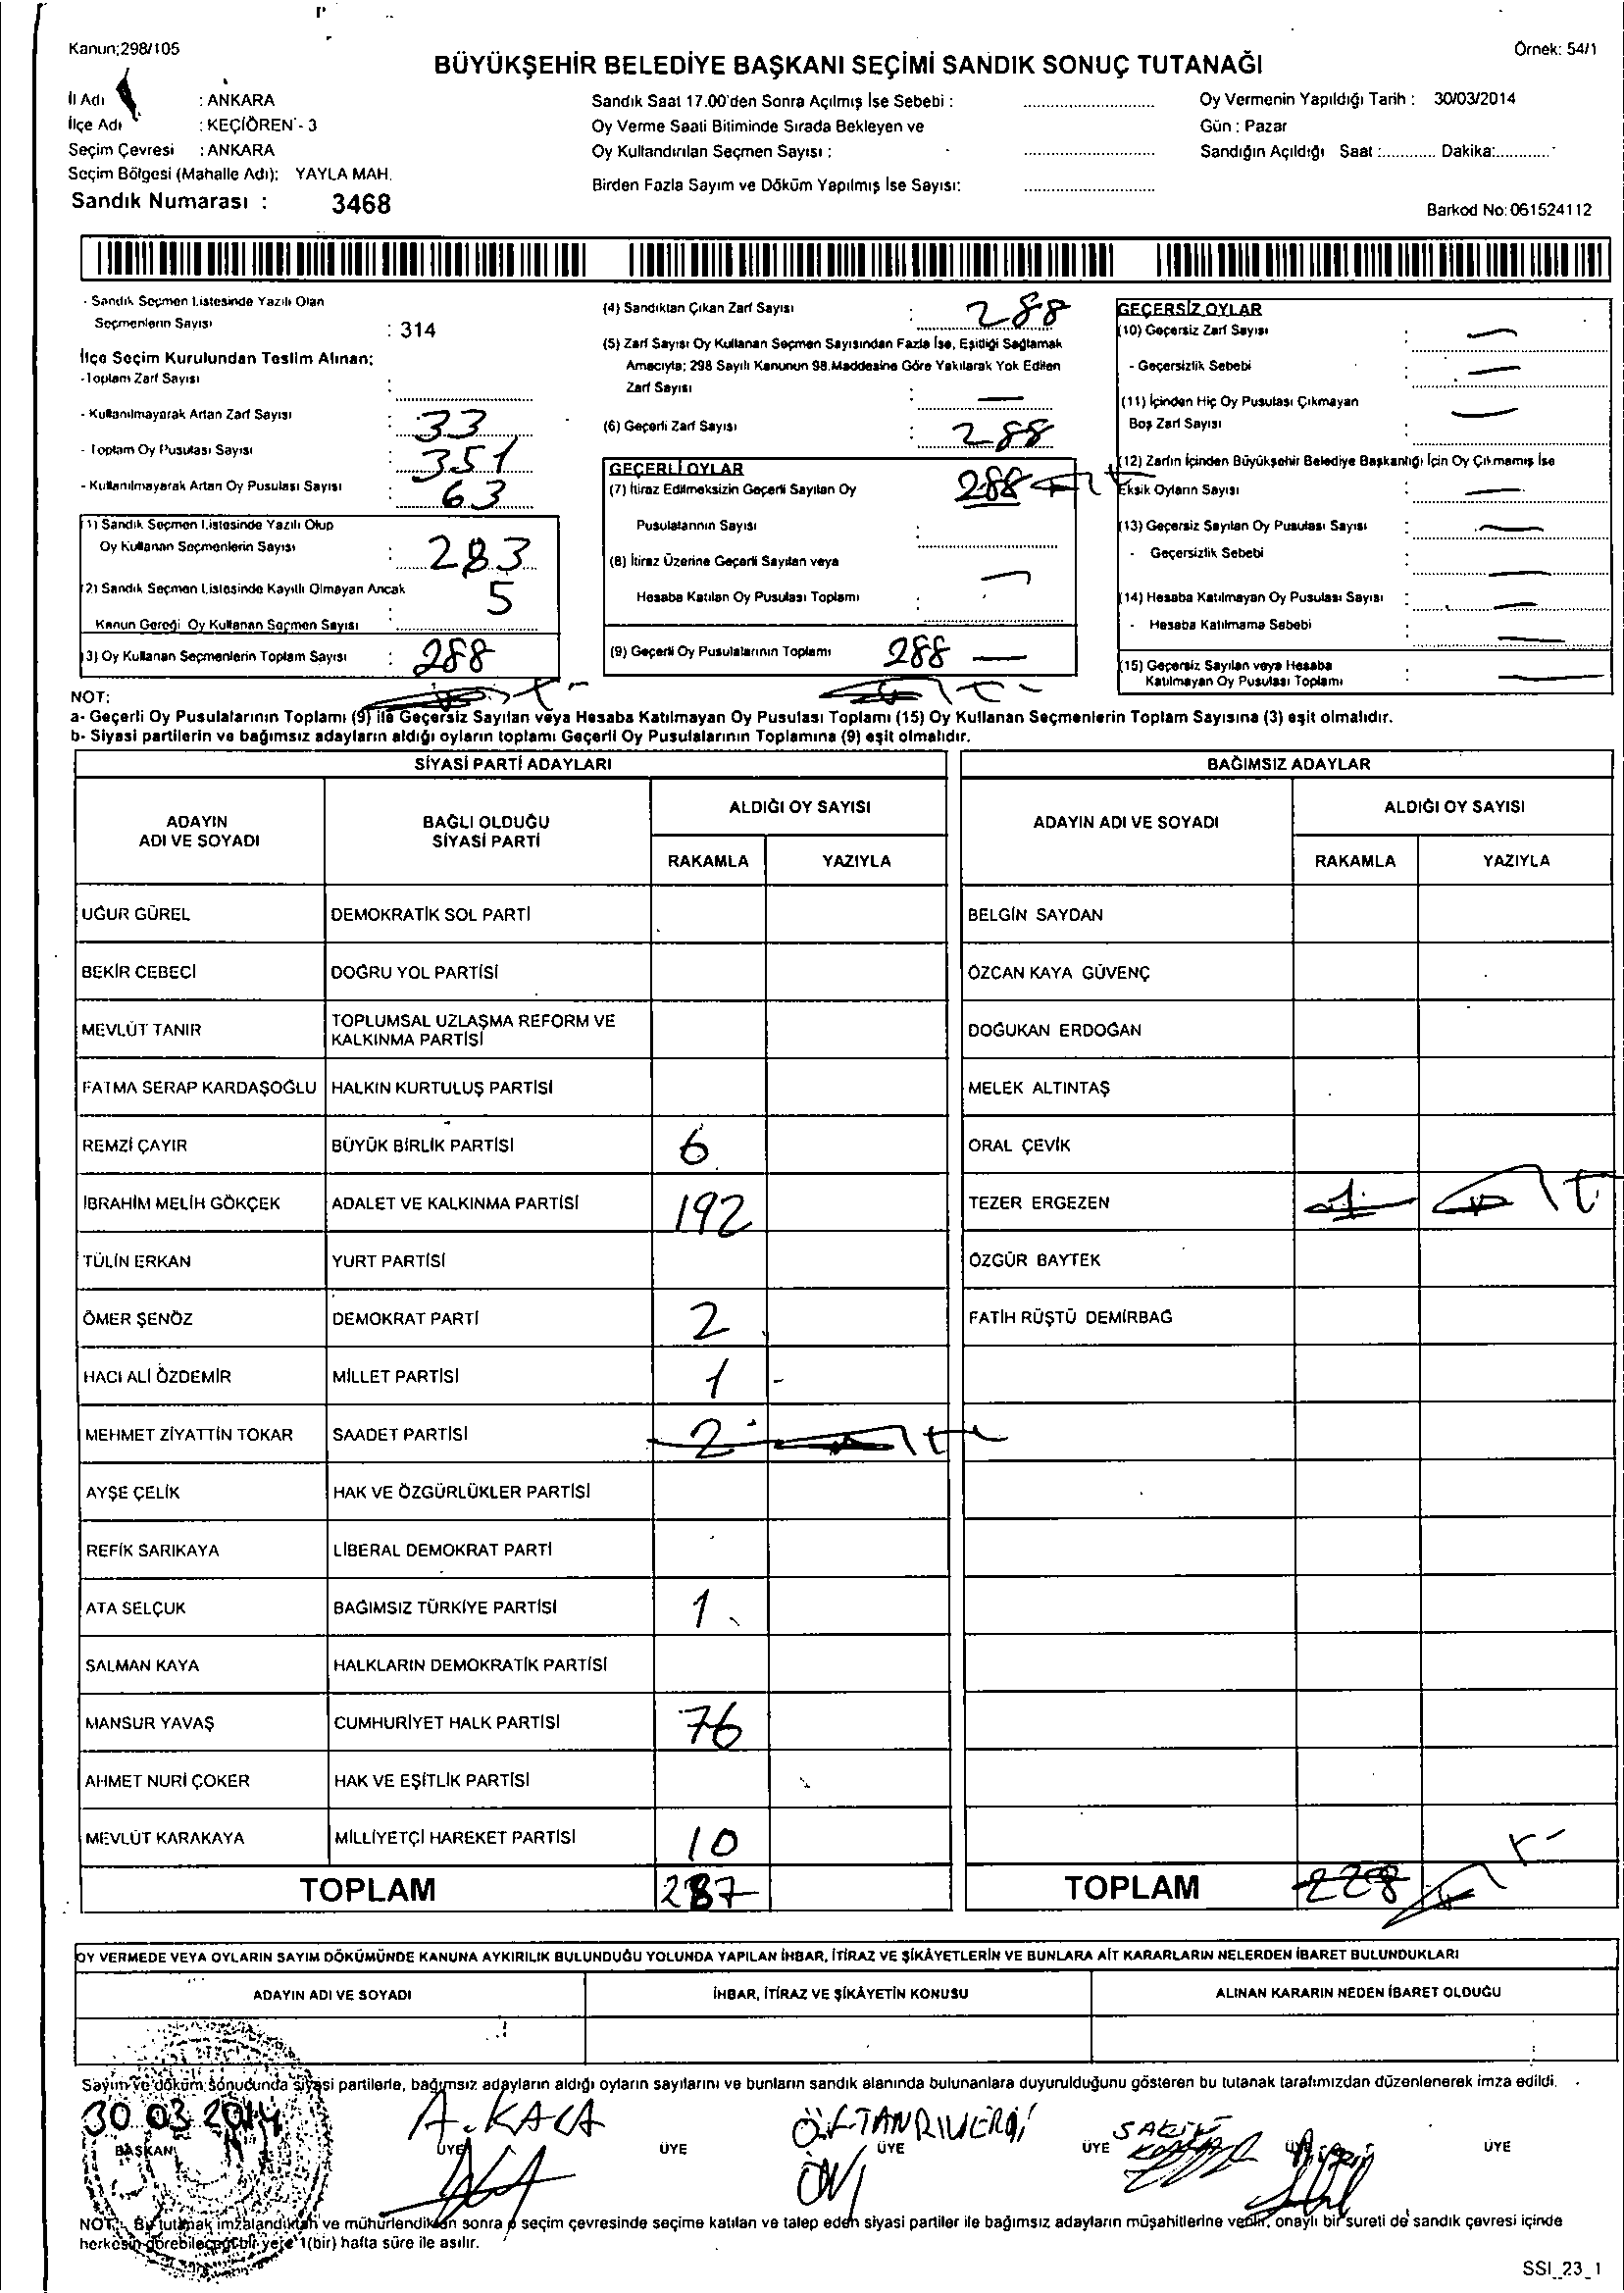 Kanun;298/105
Örnek: 54/1
BÜYÜKŞEHİR BELEDİYE BAŞKANI SEÇİMİ SANDIK SONUÇ TUTANAĞI
İl Adı : ANKARA
İlçe Adı : KEÇİÖREN - 3
Seçim Çevresi : ANKARA
Seçim Bölgesi (Mahalle Adı): YAYLA MAH.
Sandık Numarası : 3468
Sandık Saat 17.00'den Sonra Açılmış İse Sebebi :
Oy Verme Saati Bitiminde Sırada Bekleyen ve
Oy Kullandırılan Seçmen Sayısı :
Birden Fazla Sayım ve Döküm Yapılmış İse Sayısı:
Oy Vermenin Yapıldığı Tarih : 30/03/2014
Gün : Pazar
Sandığın Açıldığı Saat :............ Dakika:............
Barkod No: 061524112
- Sandık Seçmen Listesinde Yazılı Olan
Seçmenlerin Sayısı : 314
İlçe Seçim Kurulundan Teslim Alınan;
-Toplam Zarf Sayısı :
- Kullanılmayarak Artan Zarf Sayısı : 33
- Toplam Oy Pusulası Sayısı : 351
- Kullanılmayarak Artan Oy Pusulası Sayısı : 63
(1) Sandık Seçmen Listesinde Yazılı Olup
Oy Kullanan Seçmenlerin Sayısı : 283
(2) Sandık Seçmen Listesinde Kayıtlı Olmayan Ancak
Kanun Gereği Oy Kullanan Seçmen Sayısı : 5
(3) Oy Kullanan Seçmenlerin Toplam Sayısı : 288
(4) Sandıktan Çıkan Zarf Sayısı : 288
(5) Zarf Sayısı Oy Kullanan Seçmen Sayısından Fazla İse, Eşitliği Sağlamak
Amacıyla; 298 Sayılı Kanunun 98.Maddesine Göre Yakılarak Yok Edilen
Zarf Sayısı : —
(6) Geçerli Zarf Sayısı : 288
GEÇERLİ OYLAR
(7) İtiraz Edilmeksizin Geçerli Sayılan Oy 288
Pusulalarının Sayısı :
(8) İtiraz Üzerine Geçerli Sayılan veya
Hesaba Katılan Oy Pusulası Toplamı : —
(9) Geçerli Oy Pusulalarının Toplamı 288 —
GEÇERSİZ OYLAR
(10) Geçersiz Zarf Sayısı : —
- Geçersizlik Sebebi : —
(11) İçinden Hiç Oy Pusulası Çıkmayan
Boş Zarf Sayısı : —
(12) Zarfın İçinden Büyükşehir Belediye Başkanlığı İçin Oy Çıkmamış İse
Eksik Oyların Sayısı : —
(13) Geçersiz Sayılan Oy Pusulası Sayısı : —
- Geçersizlik Sebebi : —
(14) Hesaba Katılmayan Oy Pusulası Sayısı : —
- Hesaba Katılmama Sebebi : —
(15) Geçersiz Sayılan veya Hesaba
Katılmayan Oy Pusulası Toplamı : —
NOT:
a- Geçerli Oy Pusulalarının Toplamı (9) ile Geçersiz Sayılan veya Hesaba Katılmayan Oy Pusulası Toplamı (15) Oy Kullanan Seçmenlerin Toplam Sayısına (3) eşit olmalıdır.
b- Siyasi partilerin ve bağımsız adayların aldığı oyların toplamı Geçerli Oy Pusulalarının Toplamına (9) eşit olmalıdır.
SİYASİ PARTİ ADAYLARI
ADAYIN ADI VE SOYADI
BAĞLI OLDUĞU SİYASİ PARTİ
ALDIĞI OY SAYISI
RAKAMLA YAZIYLA
UĞUR GÜREL DEMOKRATİK SOL PARTİ
BEKİR CEBECİ DOĞRU YOL PARTİSİ
MEVLÜT TANIR TOPLUMSAL UZLAŞMA REFORM VE
KALKINMA PARTİSİ
FATMA SERAP KARDAŞOĞLU HALKIN KURTULUŞ PARTİSİ
REMZİ ÇAYIR BÜYÜK BİRLİK PARTİSİ 6
İBRAHİM MELİH GÖKÇEK ADALET VE KALKINMA PARTİSİ 192
TÜLİN ERKAN YURT PARTİSİ
ÖMER ŞENÖZ DEMOKRAT PARTİ 2
HACI ALİ ÖZDEMİR MİLLET PARTİSİ 1 -
MEHMET ZİYATTİN TOKAR SAADET PARTİSİ 2
AYŞE ÇELİK HAK VE ÖZGÜRLÜKLER PARTİSİ
REFİK SARIKAYA LİBERAL DEMOKRAT PARTİ
ATA SELÇUK BAĞIMSIZ TÜRKİYE PARTİSİ 1
SALMAN KAYA HALKLARIN DEMOKRATİK PARTİSİ
MANSUR YAVAŞ CUMHURİYET HALK PARTİSİ 76
AHMET NURİ ÇOKER HAK VE EŞİTLİK PARTİSİ
MEVLÜT KARAKAYA MİLLİYETÇİ HAREKET PARTİSİ 10
TOPLAM 287
BAĞIMSIZ ADAYLAR
ADAYIN ADI VE SOYADI
ALDIĞI OY SAYISI
RAKAMLA YAZIYLA
BELGİN SAYDAN
ÖZCAN KAYA GÜVENÇ
DOĞUKAN ERDOĞAN
MELEK ALTINTAŞ
ORAL ÇEVİK
TEZER ERGEZEN 1
ÖZGÜR BAYTEK
FATİH RÜŞTÜ DEMİRBAĞ
TOPLAM 228
OY VERMEDE VEYA OYLARIN SAYIM DÖKÜMÜNDE KANUNA AYKIRILIK BULUNDUĞU YOLUNDA YAPILAN İHBAR, İTİRAZ VE ŞİKÂYETLERİN VE BUNLARA AİT KARARLARIN NELERDEN İBARET BULUNDUKLARI
ADAYIN ADI VE SOYADI İHBAR, İTİRAZ VE ŞİKÂYETİN KONUSU ALINAN KARARIN NEDEN İBARET OLDUĞU
Sayım ve döküm sonucunda siyasi partilerle, bağımsız adayların aldığı oyların sayılarını ve bunların sandık alanında bulunanlara duyurulduğunu gösteren bu tutanak tarafımızdan düzenlenerek imza edildi.
30 03 2014 A. KACA
BAŞKAN ÜYE ÜYE ÜYE ÜYE ÜYE
NOT: Bu tutanak imzalandıktan ve mühürlendikten sonra o seçim çevresinde seçime katılan ve talep eden siyasi partiler ile bağımsız adayların müşahitlerine verilir, onaylı bir sureti de sandık çevresi içinde
herkesin görebileceği bir yere 1(bir) hafta süre ile asılır.
SSI_23_1